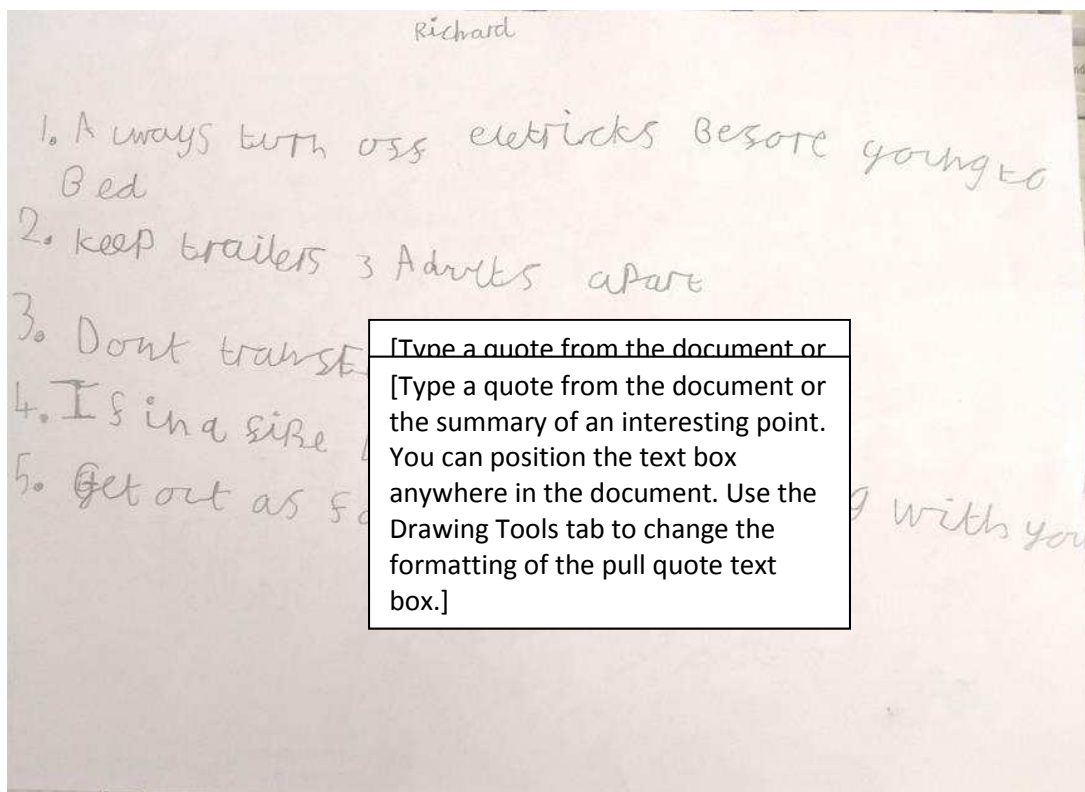 Richard
1. A ways turn off eletricks Before going to
Bed
2. keep trailers & Adults apart
3. Dont
4. If in a fire
5. Get out as with you
[Type a quote from the document or
[Type a quote from the document or
the summary of an interesting point.
You can position the text box
anywhere in the document. Use the
Drawing Tools tab to change the
formatting of the pull quote text
box.]